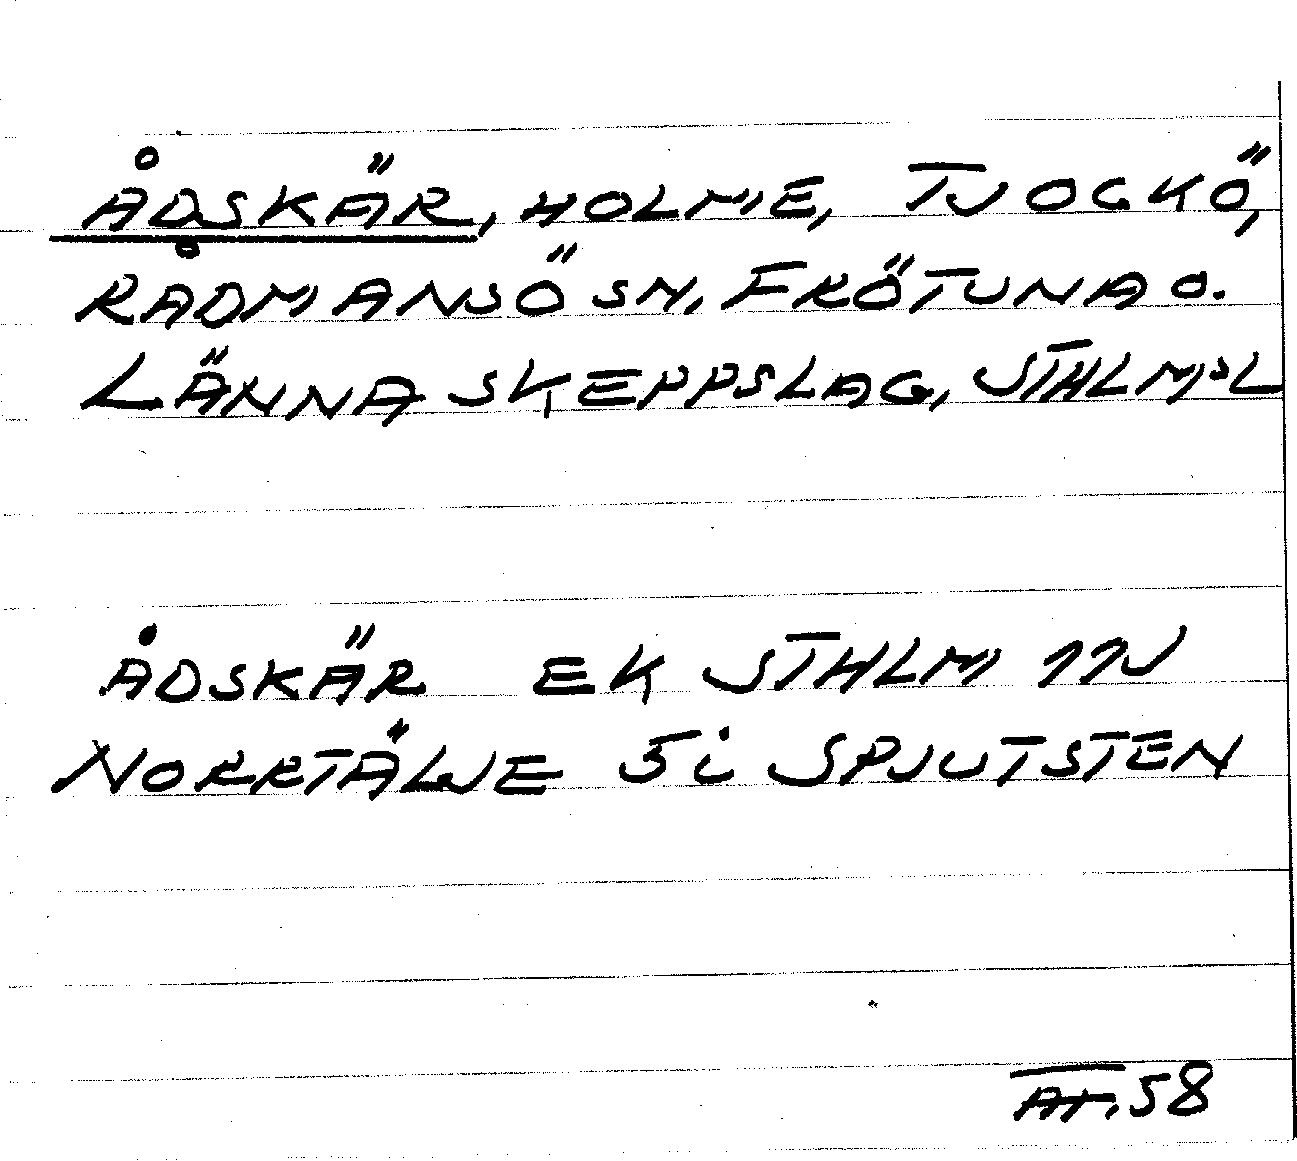 ÅDSKÄR, HOLME, TJOCKÖ,
RÅDMANSÖ SN, FRÖTUNA O.
LÄNNA SKEPPSLAG, STHLMS L
ÅDSKÄR EK STHLM 11J
NORRTÄLJE 5i SPJUTSTEN
58